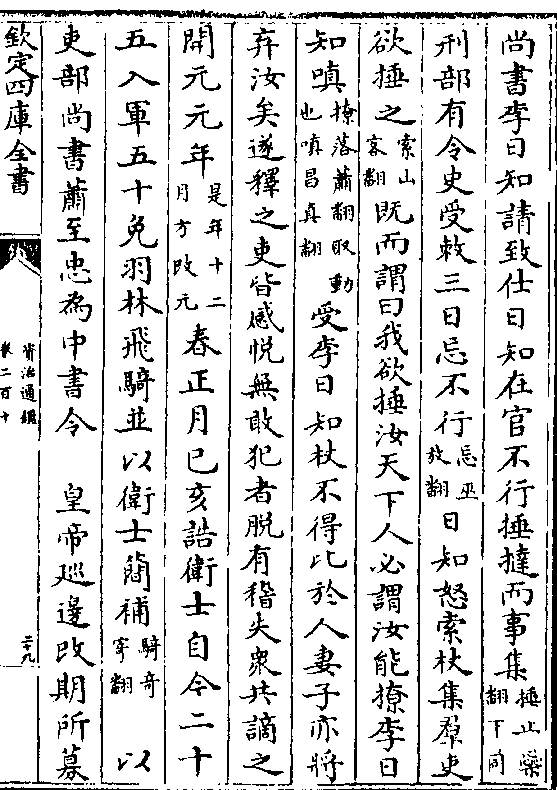 尚書李日知請致仕日知在官不行捶撻而事集捶止橤翻下同
刑部有令史受敕三日忘不行忘巫放翻日知怒索杖集羣吏
欲捶之索山客翻既而謂曰我欲捶汝天下人必謂汝能撩李日
知嗔撩落蕭翻取動也嗔昌真翻受李日知杖不得比於人妻子亦將
弃汝矣遂釋之吏皆感悦無敢犯者脱有稽失衆共謫之
開元元年是年十二月方改元春正月己亥誥衛士自今二十
五入軍五十免羽林飛騎並以衛士簡補騎奇寄翻 以
吏部尚書蕭至忠為中書令 皇帝巡邊改期所募
欽定四庫全書
資治通鑑
卷二百十
二十九